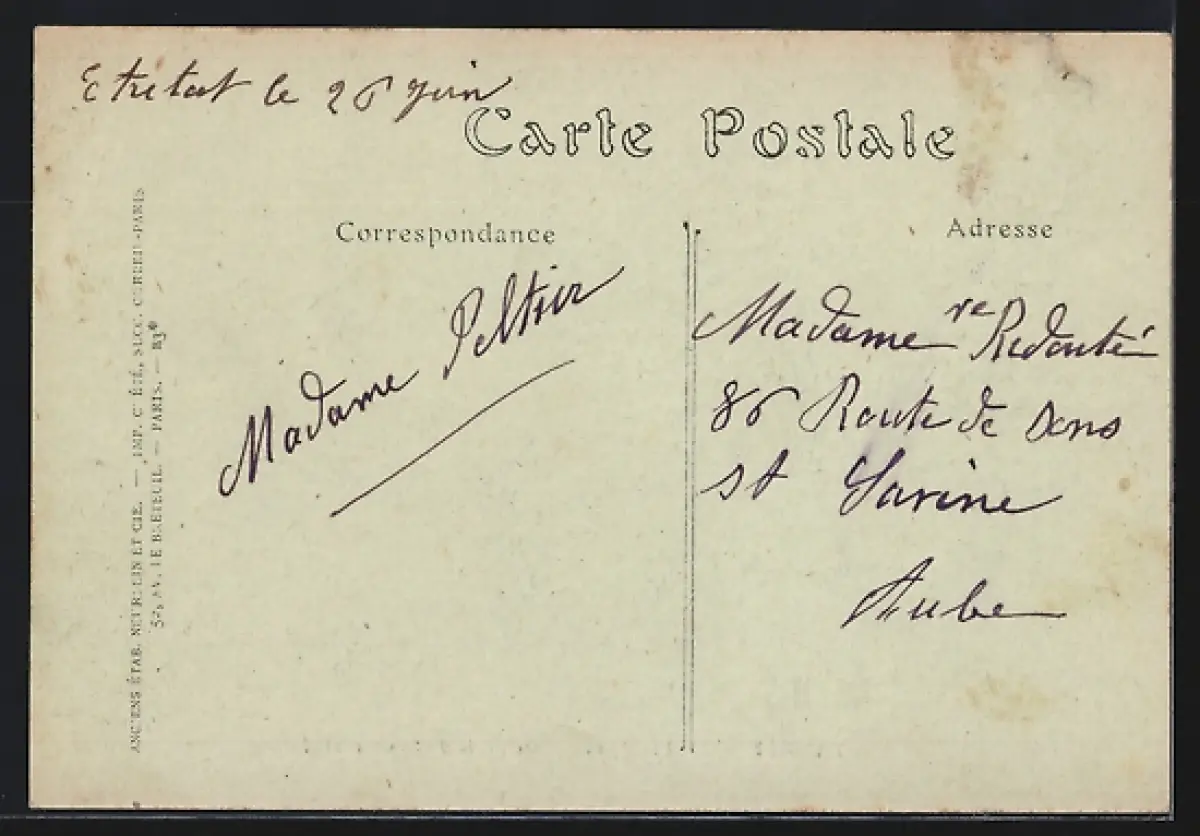 Etretat le 26 juin
Carte Postale
Correspondance
Adresse
Madame Peltier
Madame Ve Redouté
86 Route de Sens
St Savine
Aube
ANCIENS ÉTAB. NEURDEIN ET CIE. — IMP. CRÉTÉ, SUCC. CORBEIL-PARIS
52, AV. DE BRETEUIL. — PARIS. —